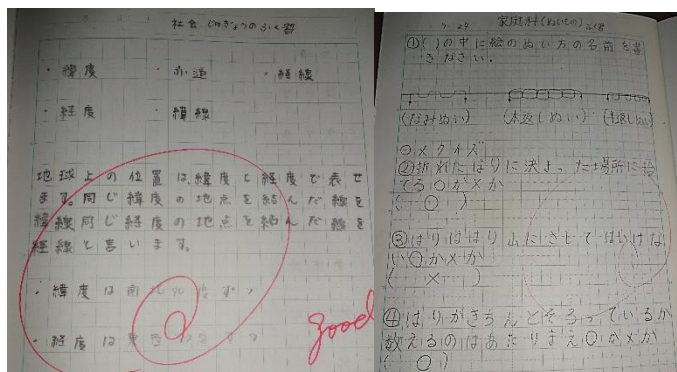 社会 じゅぎょうのふく習
・緯度 ・赤道 ・経線
・経度 ・緯線
地球上の位置は、緯度と経度で表せ
ます。同じ緯度の地点を結んだ線を
緯線同じ経度の地点を結んだ線を
経線と言います。
・緯度は南北90度ずつ
・経度は東西 度ずつ
good
7.29 家庭科(ぬいもの)ふく習
①( )の中に絵のぬい方の名前を書
きなさい。
(なみぬい) (本返しぬい) (半返しぬい)
○×クイズ
②折れたはりは決まった場所に捨
てる○か×か
( ○ )
③はりははり山にさしてはいけな
い○か×か
( × )
④はりがきちんとそろっているか
数えるのはあたりまえ○か×か
( ○ )